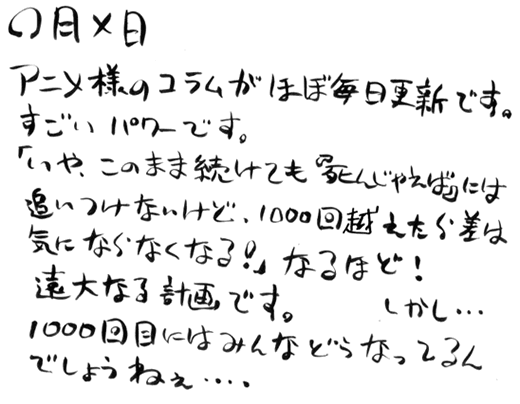 〇月×日
アニメ様のコラムがほぼ毎日更新です。
すごいパワーです。
「いや、このまま続けても『死んじゃえば』には
追いつけないけど、1000回越えたら差は
気にならなくなる!」なるほど!
遠大なる計画です。　しかし…
1000回目にはみんなどうなってるん
でしょうねぇ‥‥。